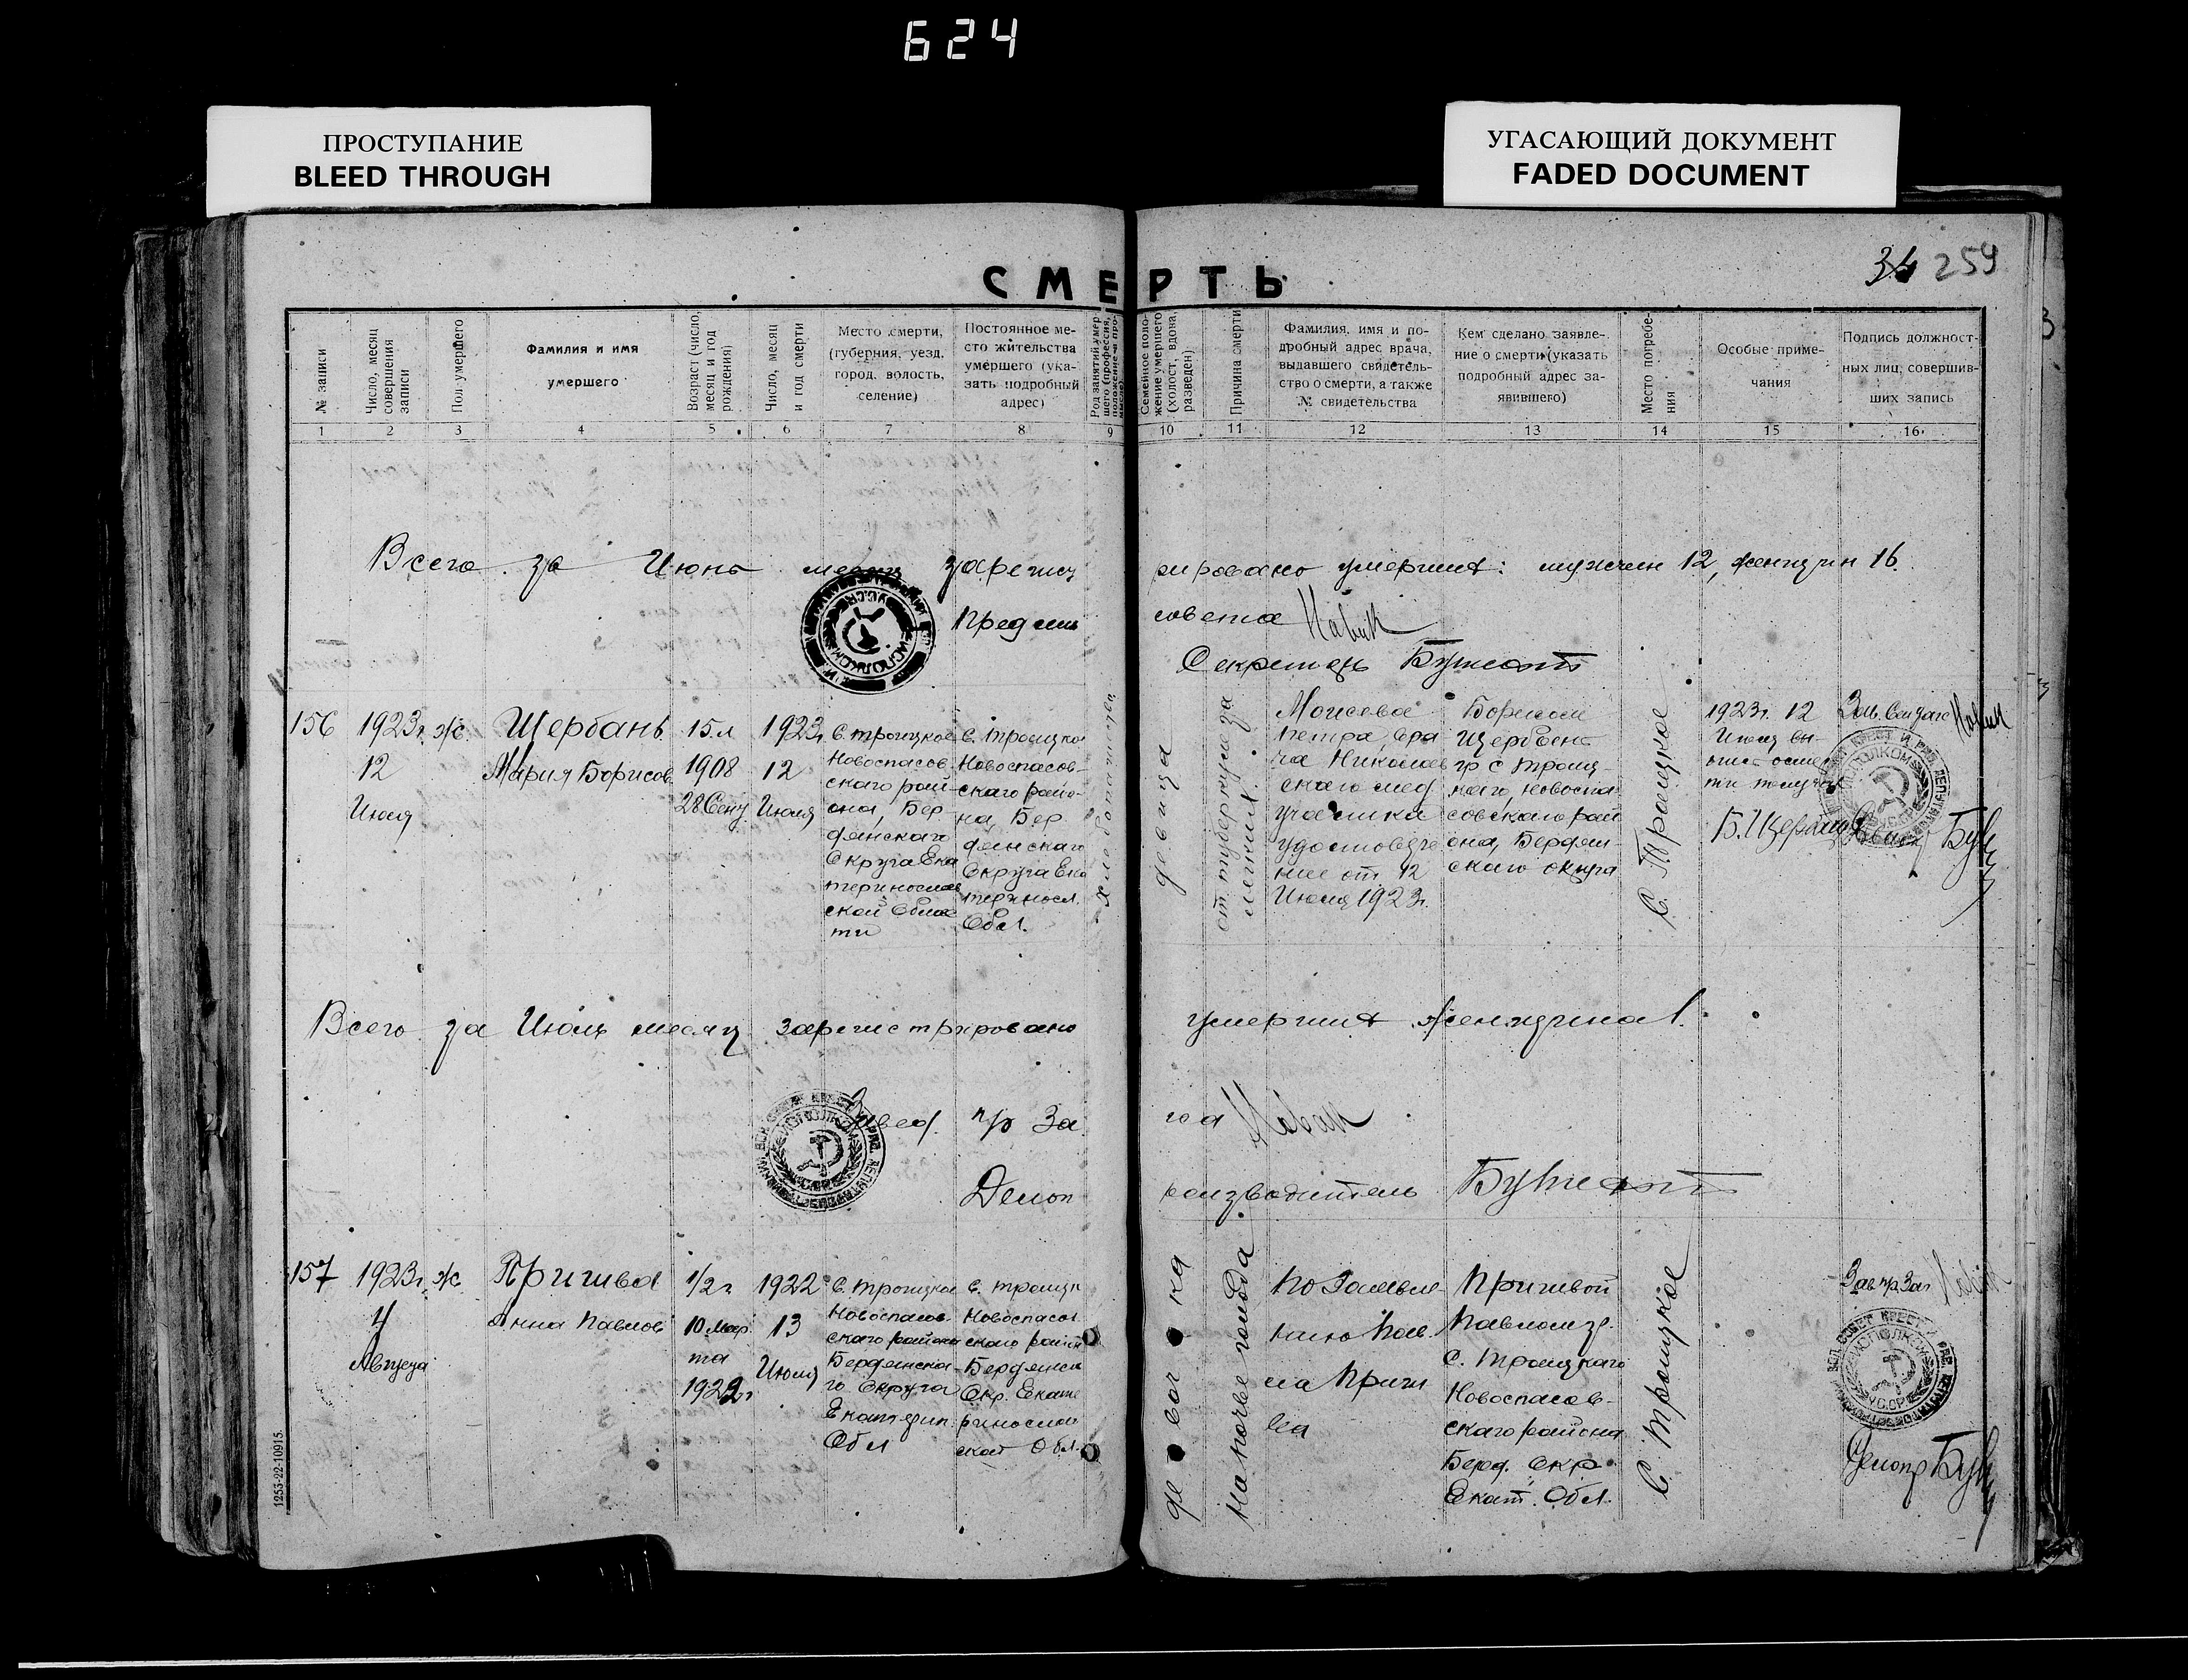 624
ПРОСТУПАНИЕ
BLEED THROUGH
УГАСАЮЩИЙ ДОКУМЕНТ
FADED DOCUMENT
259
СМЕРТЬ
№ записи
Число, месяц совершения записи
Пол умершего
Фамилия и имя
умершего
Возраст (число, месяц и год рождения)
Число, месяц и год смерти
Место смерти,
(губерния, уезд,
город, волость,
селение)
Постоянное ме-
сто жительства
умершего (ука-
зать подробный
адрес)
Семейное поло-
жение умершего
(холост, вдова,
разведен)
Причина смерти
Фамилия, имя и по-
дробный адрес врача,
выдавшего свидетель-
ство о смерти, а также
№ свидетельства
Кем сделано заявле-
ние о смерти (указать
подробный адрес за-
явившего)
Место погребе-
ния
Особые приме-
чания
Подпись должност-
ных лиц, совершив-
ших запись
1 2 3 4 5 6 7 8 9 10 11 12 13 14 15 16
Всего за Июнь месяц зарегист
рировано умерших: мужчин 12, женщин 16.
Пред сель
совета Новик
Секретарь
156
1923г.
12
Июля
ж.
Щербань
Мария Борисов
15 л
1908
28 Сент
1923г
12
Июля
С. Троицкое
Новоспасов
скаго рай-
она, Бер
дянскаго
Округа Ека
теринослав
ской Облас
ти
С. Троицко
Новоспасов-
скаго райо-
на, Бер
дянскаго
Округа Ека
териносл.
Обл.
хлебопашец
девица
от туберкулеза
легких
Моисеева
Петра, вра
ча Николаев
скаго мед
участка
удостовере
ние от 12
Июля 1923г.
Борисом
Щербань
гр с Троиц-
каго, Новоспа
совскаго рай
она, Бердян-
скаго округа
С. Троицкое
1923г. 12
Июля вы-
Новик
Всего за Июль месяц зарегистрировано
умерших женщина 1.
Завед. п/о За
гса Новик
Делоп
роизводитель
157
1923г.
4
Августа
ж.
Пригива
Анна Павлов
1/2 г
10 Мар
та
1922г
1922
13
Июля
С. Троицкое
Новоспасов-
скаго района
Бердянска-
го Округа
Екатерин.
Обл
С. Троицк
Новоспасов
скаго район
Бердянск
Окр. Екате
ринослав
ской Обл.
девочка
На почве голода
По Заявле
нию Пав.
ла Приги
ва
Пригивой
Павлом гр.
С. Троицкаго
Новоспасов-
скаго района
Берд. Окр.
Екат. Обл.
С. Троицкое
Зав п/о Заг
Делопр
1253-22-10915.